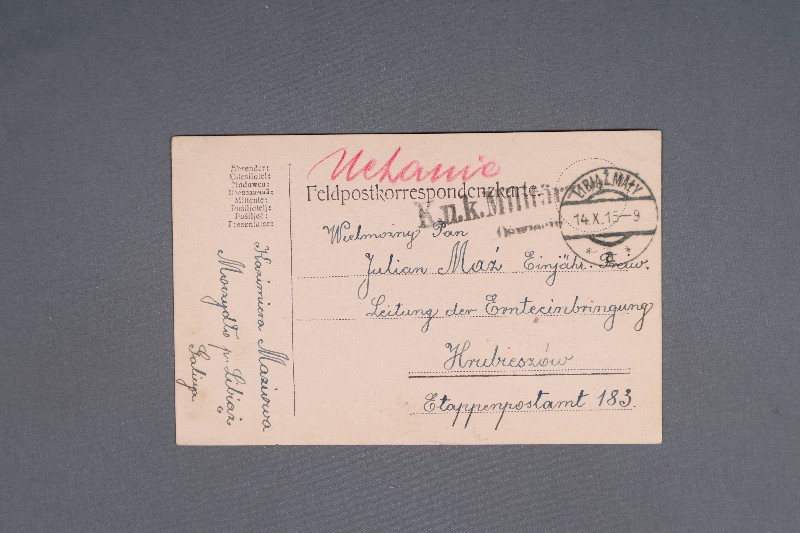 Absender:
Odesílatel:
Nadawca:
Mittente:
Pošiljatelj:
Pošiljač:
Presentator:
Kazimiera Maziowa
Moczydło p. Libiąż
Galicya
Uchanie
Feldpostkorrespondenzkarte.
K.u.k. Militär
LIBIĄŻ MAŁY
14.X.15-9
a
Wielmożny Pan
Julian Maź Einjähr. Freiw.
Leitung der Ernteeinbringung
Hrubieszów
Etappenpostamt 183.